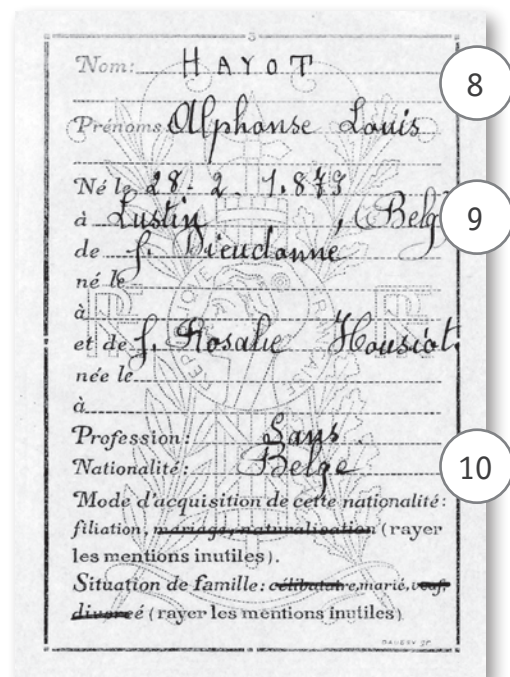 3
Nom: HAYOT
8
Prénoms: Alphonse Louis
Né le 28-2 1.873
à Lustin, Belg
9
de f. Dieudonne
né le
à
RF REPUBLIQUE FRANCAISE RF
et de f. Rosalie Housiot.
née le
à
Profession: Sans
Nationalité: Belge
10
Mode d'acquisition de cette nationalité:
filiation, mariage, naturalisation (rayer
les mentions inutiles).
Situation de famille: célibataire, marié, veuf,
divorcé (rayer les mentions inutiles)